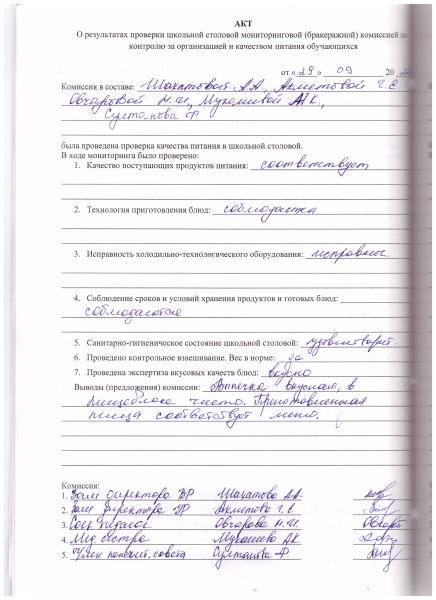 АКТ
О результатах проверки школьной столовой мониторинговой (бракеражной) комиссией по
контролю за организацией и качеством питания обучающихся
от « 29 » 09 20
Комиссия в составе: Шахатовой А.А., Ахметовой Г.Е
Овчаровой Н.И., Мукашевой А.К.,
Султанова Ф
была проведена проверка качества питания в школьной столовой.
В ходе мониторинга было проверено:
1. Качество поступающих продуктов питания: соответствует
2. Технология приготовления блюд: соблюдается
3. Исправность холодильно-технологического оборудования: исправное
4. Соблюдение сроков и условий хранения продуктов и готовых блюд:
соблюдаются
5. Санитарно-гигиеническое состояние школьной столовой: удовлетворит.
6. Проведено контрольное взвешивание. Вес в норме: да
7. Проведена экспертиза вкусовых качеств блюд: вкусно
Выводы (предложения) комиссии: вкусная, в
пищеблоке чисто. Приготовленная
пища соответствует меню.
Комиссия:
1. Зам директора ВР Шахатова А.А.
2. Зам директора УР Ахметова Г.Е
3. Соц педагог Овчарова Н.И.
4. Мед сестра Мукашева А.К
5. Член попечит. совета Султанова Ф